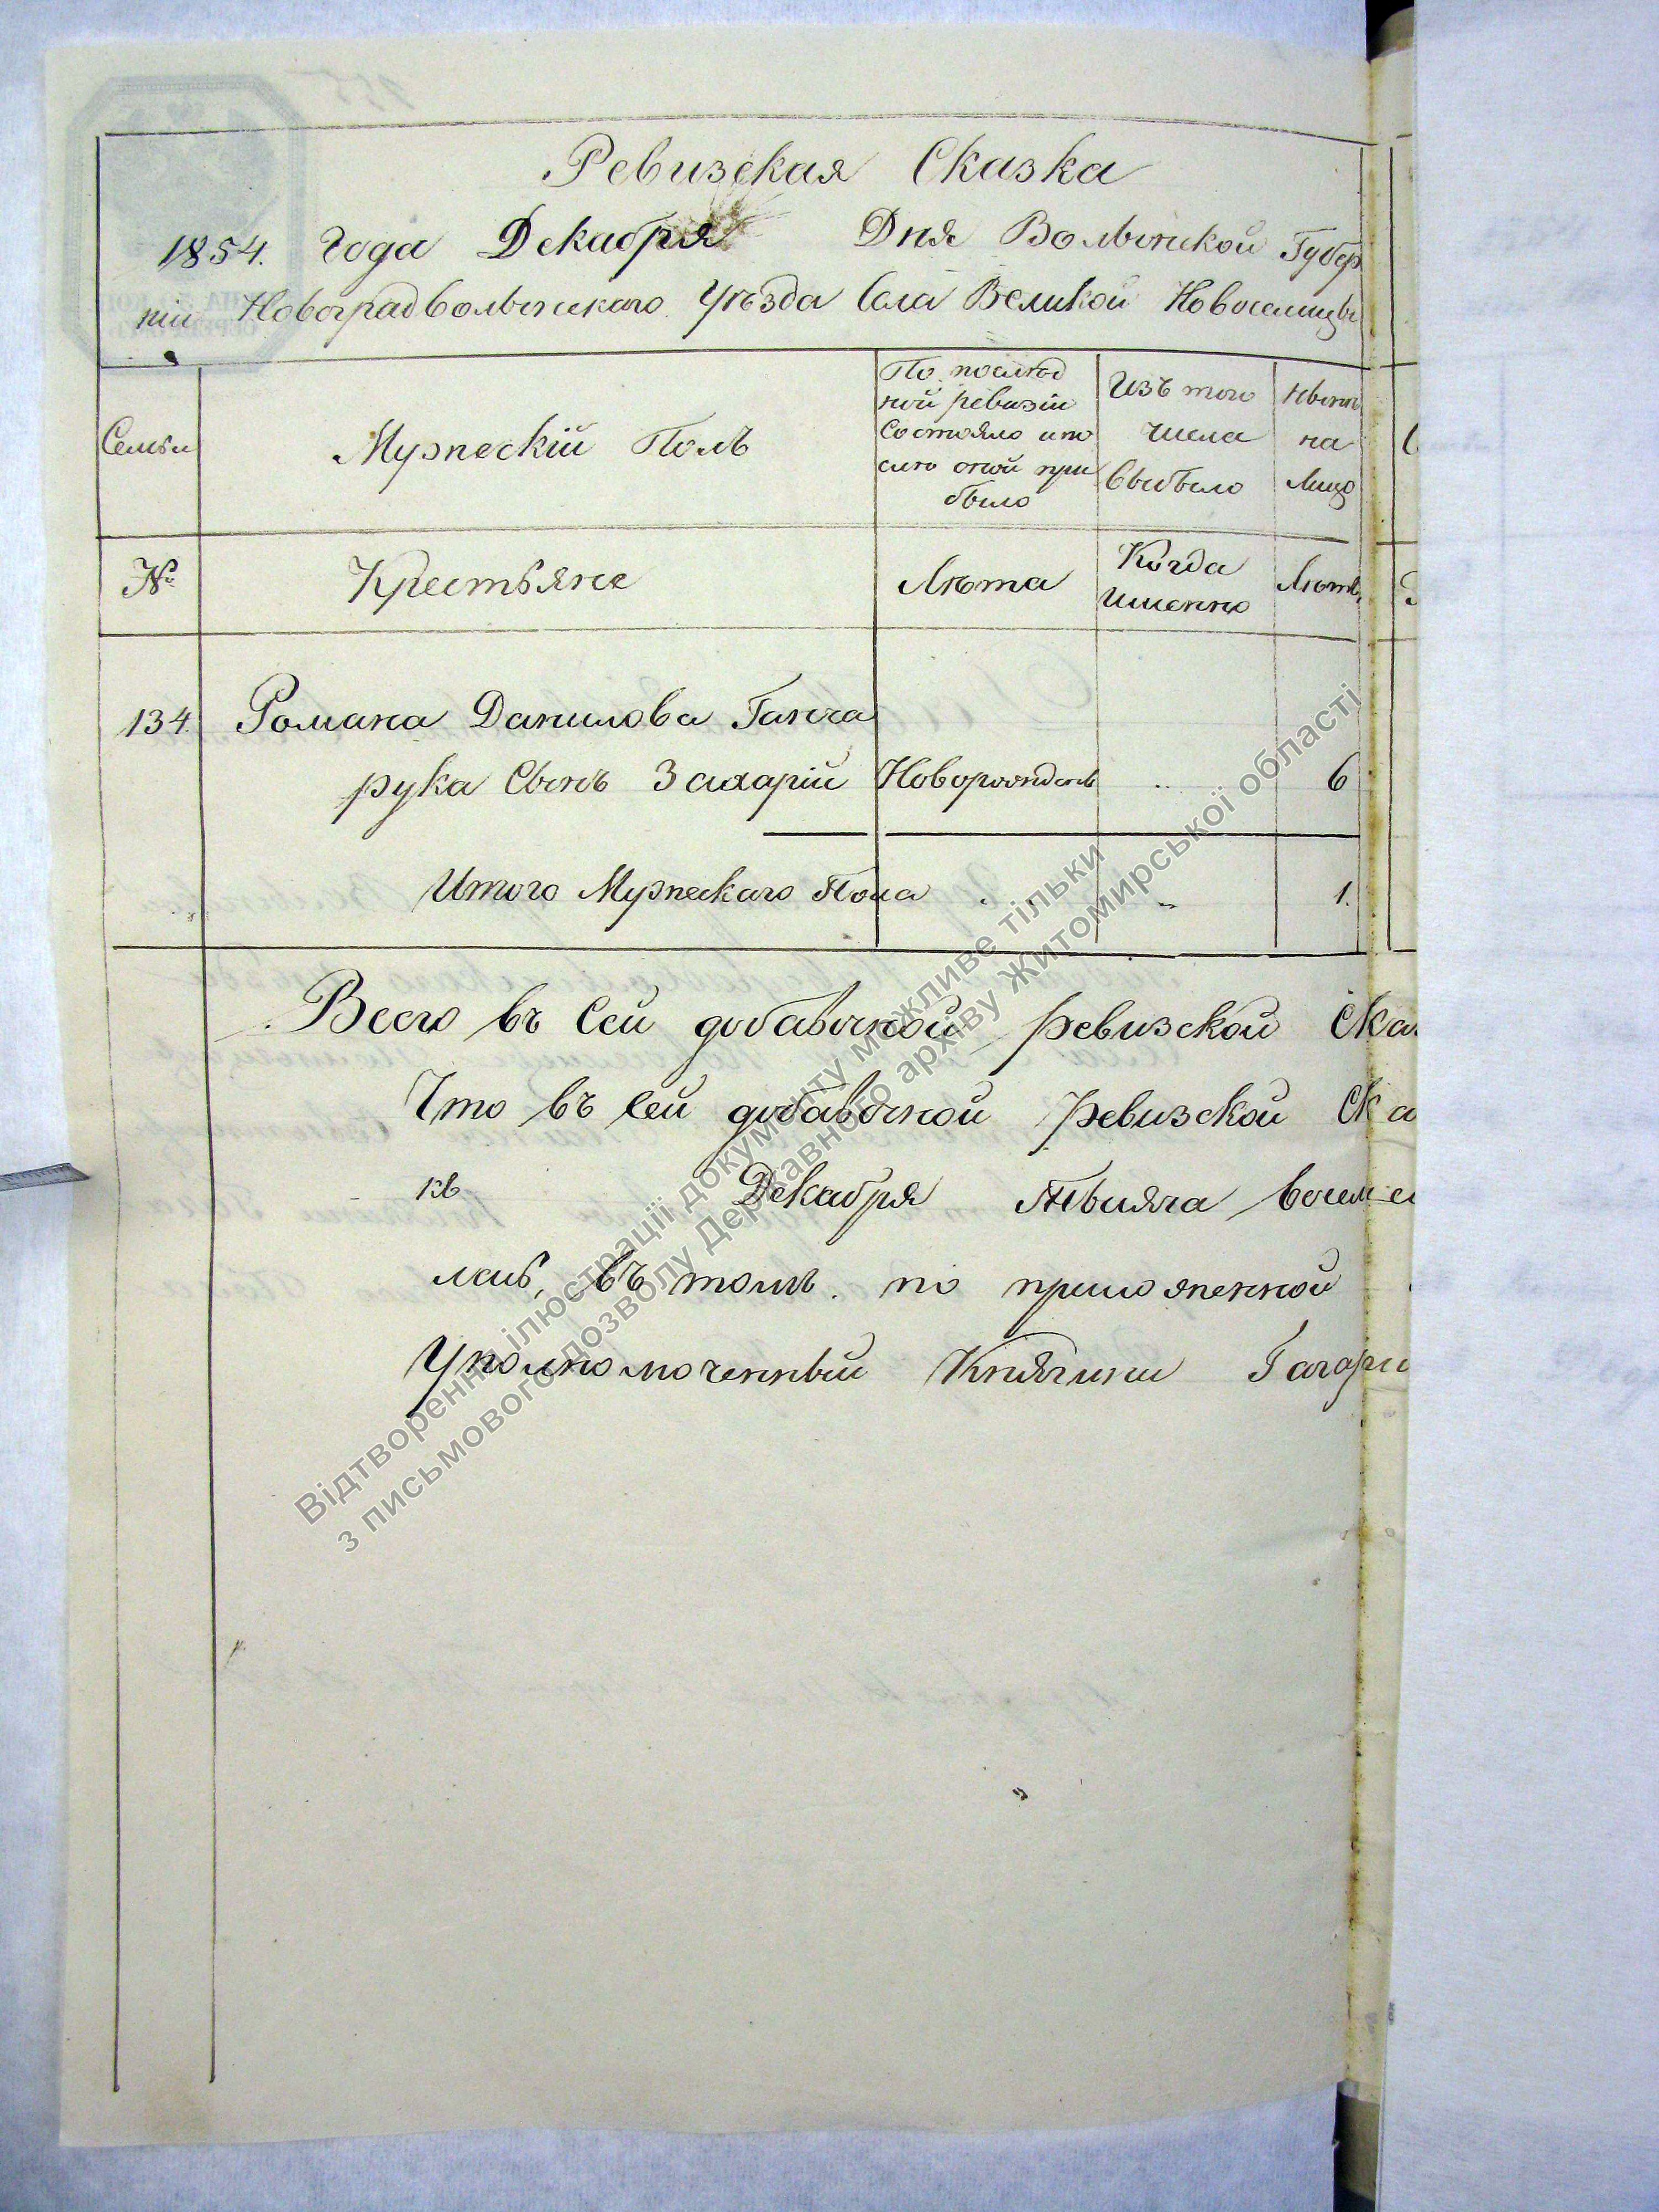 Ревизская Сказка
1854. Года Декабря Дня Волынской Губер
ніи Новоградволынскаго Уѣзда Села Великой Новоселицы
Семьи
Мужескій Полъ
По послѣд
ней ревизіи
Состояло и по
слѣ оной при
было
Изъ того
числа
Выбыло
Нынѣ
на
Лицо
№
Крестьяне
Лѣта
Когда
Именно
Лѣта
134. Романа Данилова Ганча
рука Сынъ Захарій Новорожденъ „ 6
Итого Мужескаго Пола „ „ 1.
Всего въ Сей добавочной ревизской Ска
Что въ сей добавочной ревизской Ска
Декабря Тысяча восем
въ томъ по приложенной
Уполномоченный Княгини Гагари
Відтворення ілюстрації документу можливе тільки
з письмового дозволу Державного архіву Житомирської області